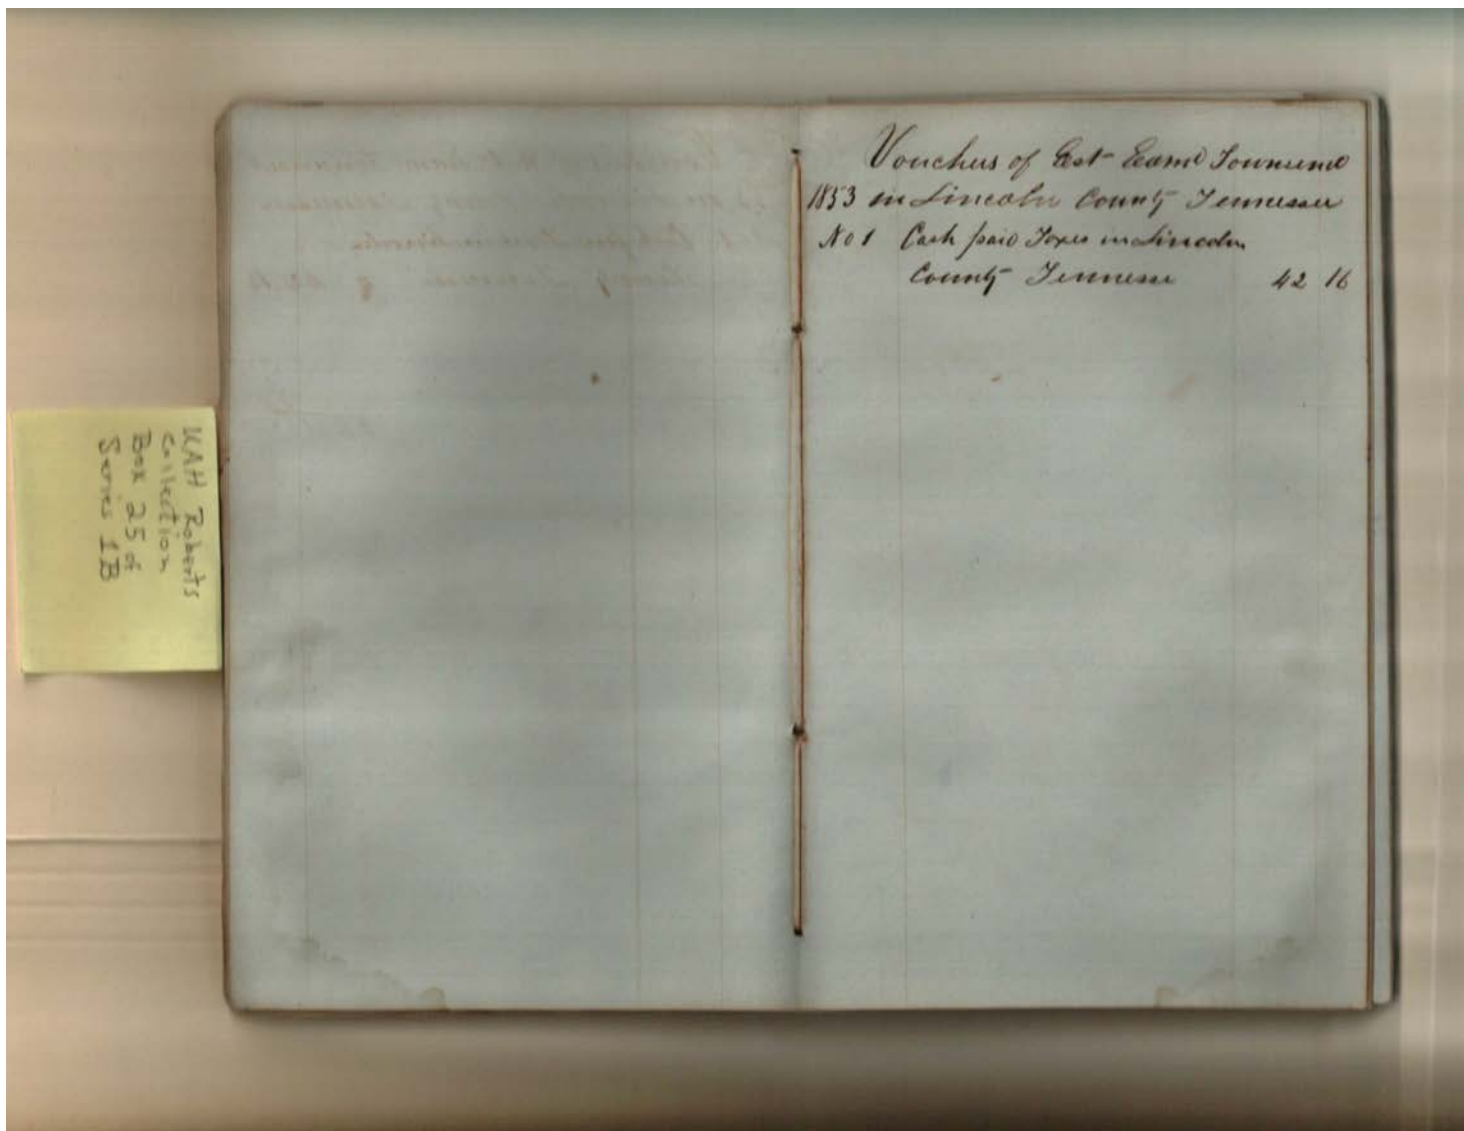 UAH Roberts
Collection
Box 25 of
Series 1B
Vouchers of Est Edmd Townsend
1853 in Lincoln County Tennessee
No 1 Cash paid Taxes in Lincoln
County Tennessee 42 16